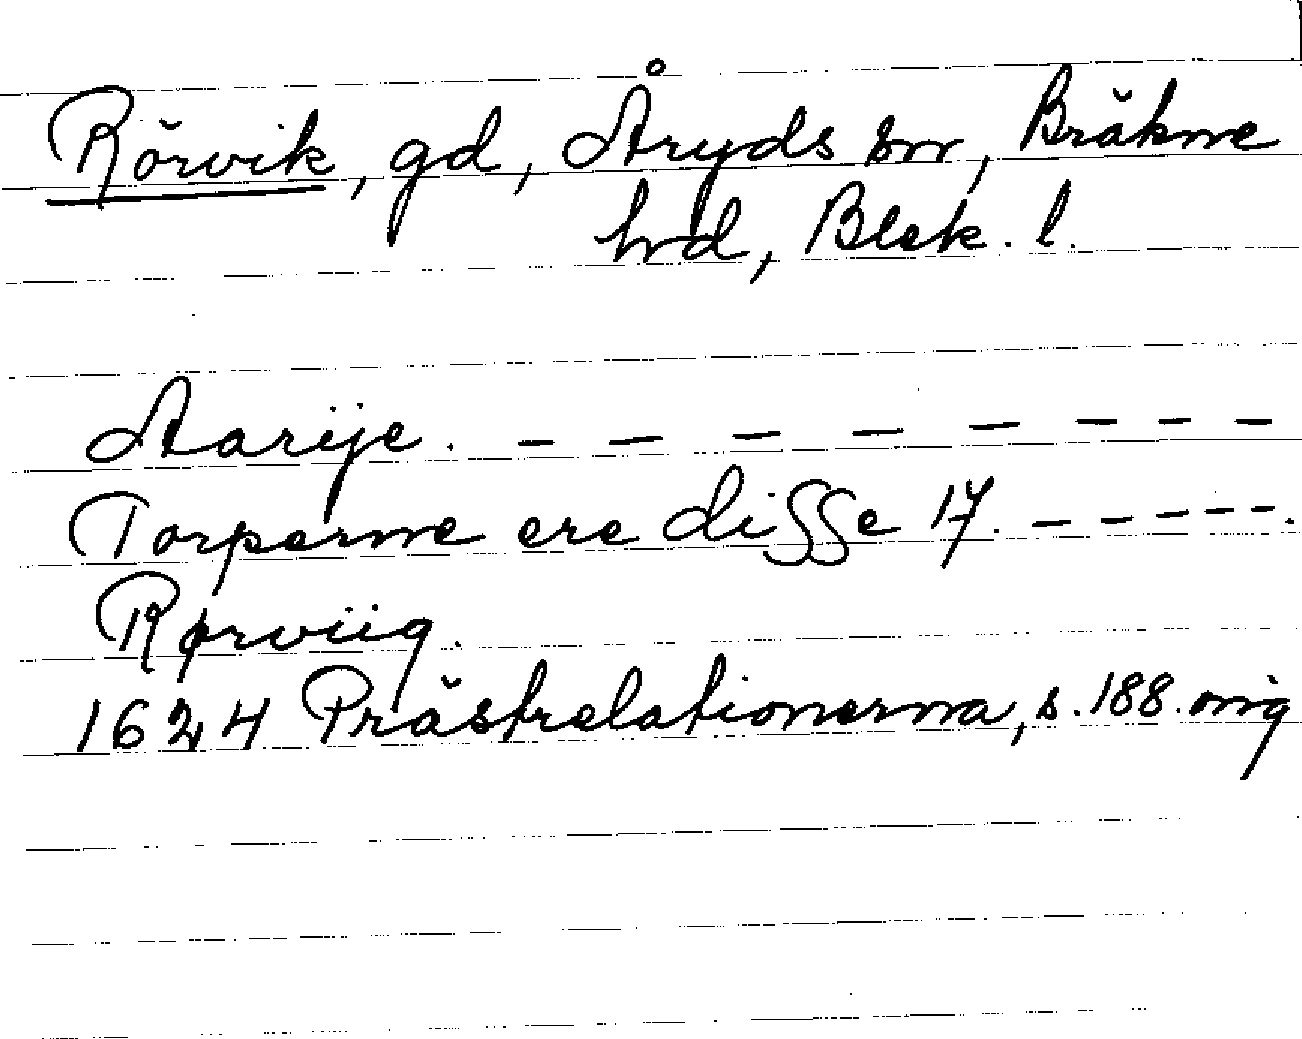 Rörvik, gd, Åryds sn, Bräkne
hrd, Blek. l.
Aarÿe. – – – – – – – –
Torperne ere disse 17. – – – – – .
Rørviig.
1624 Prästrelationerna, s. 188. orig